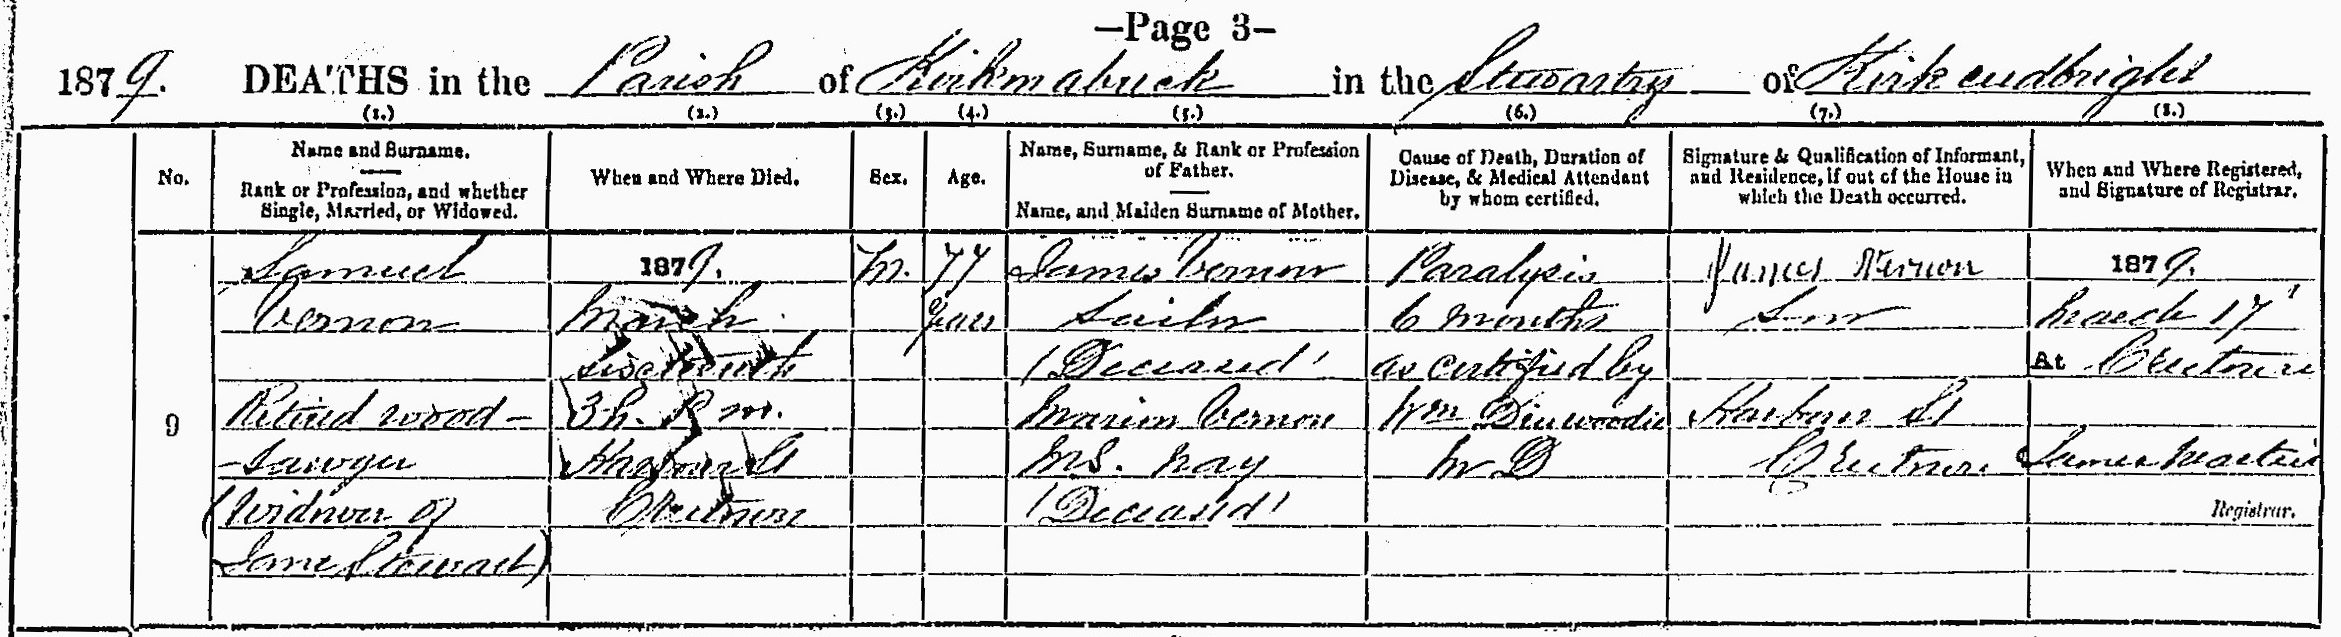 —Page 3—
1879. DEATHS in the Parish of Kirkmabreck in the Stewartry of Kirkcudbright
(1.) (2.) (3.) (4.) (5.) (6.) (7.) (8.)
No.
Name and Surname.
Rank or Profession, and whether
Single, Married, or Widowed.
When and Where Died.
Sex.
Age.
Name, Surname, & Rank or Profession
of Father.
Name, and Maiden Surname of Mother.
Cause of Death, Duration of
Disease, & Medical Attendant
by whom certified.
Signature & Qualification of Informant,
and Residence, if out of the House in
which the Death occurred.
When and Where Registered,
and Signature of Registrar.
9
Samuel
Vernon
Retired wood-
-sawyer
(Widower of
Jane Stewart)
1879.
March
Sixteenth
3h. P.m.
Harbour St
Creetown
M.
77
years
James Vernon
Sailor
(Deceased)
Marion Vernon
M.S.
(Deceased)
Paralysis
6 months
as certified by
Wm Dinwoodie
M D
James Vernon
Son
Harbour St
Creetown
1879.
March 17
At Creetown
James
Registrar.